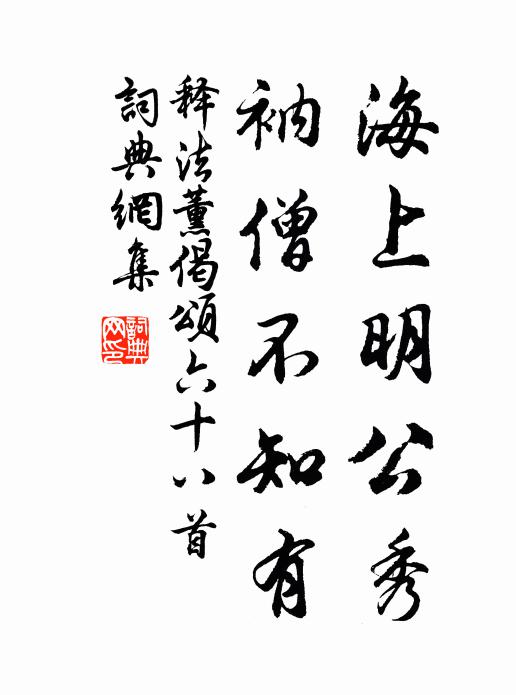 海上明公秀
衲僧不知有
释法薰偈頌六十八首
詞典網集
詞典网印